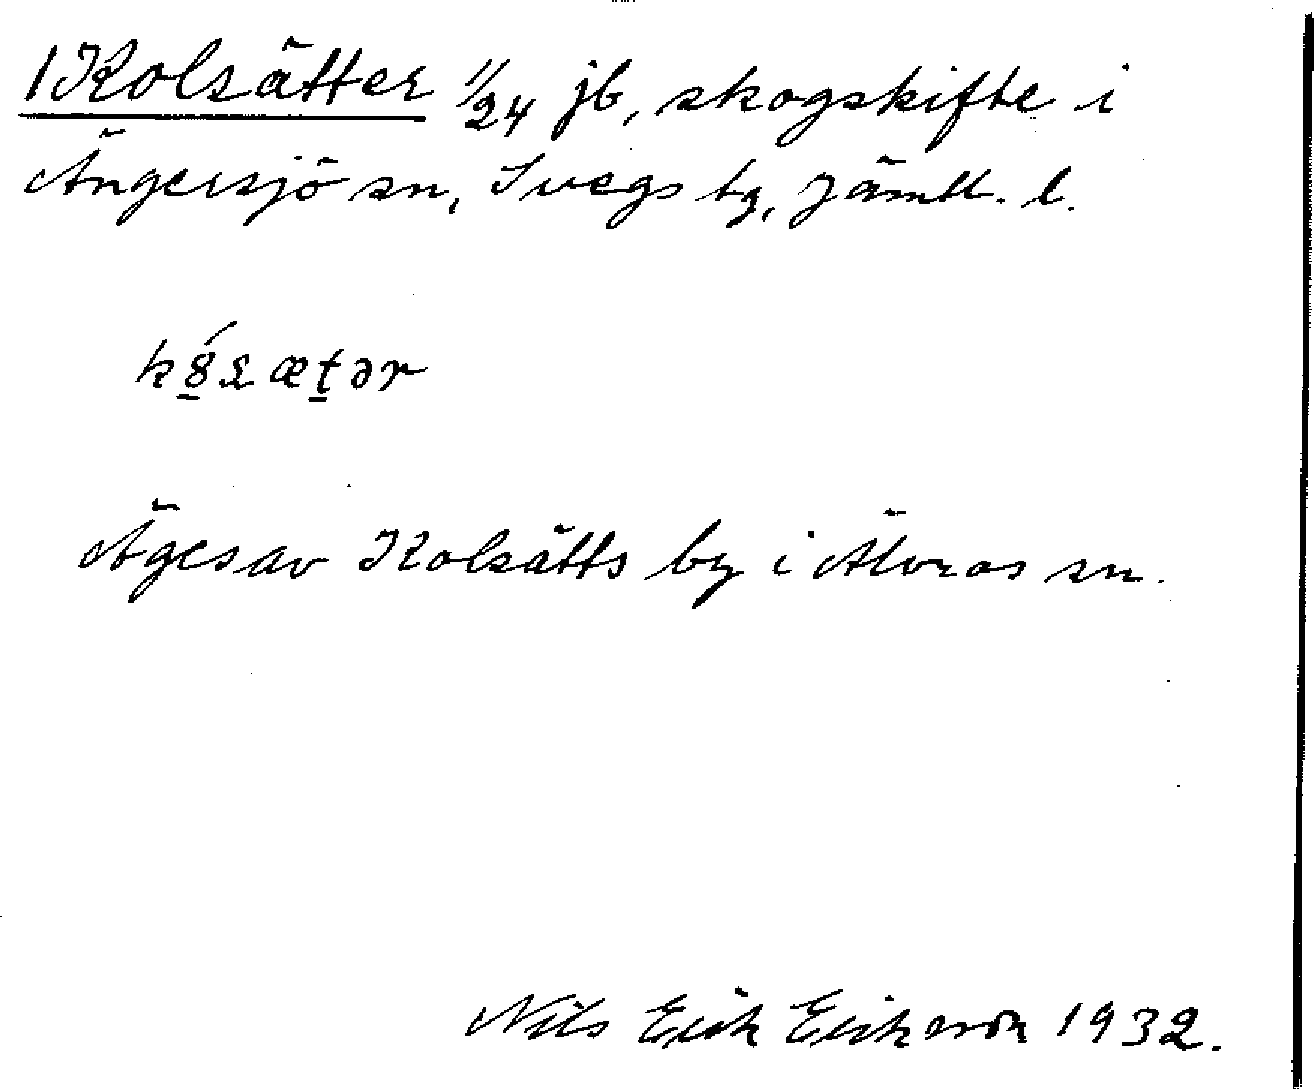 1 Kolsätter 1/24 jb, skogskifte i
Ängersjö sn, Svegs tg, Jämtl. l.
Äges av Kolsätts by i Älvros sn.
Nils Erik Erikson 1932.